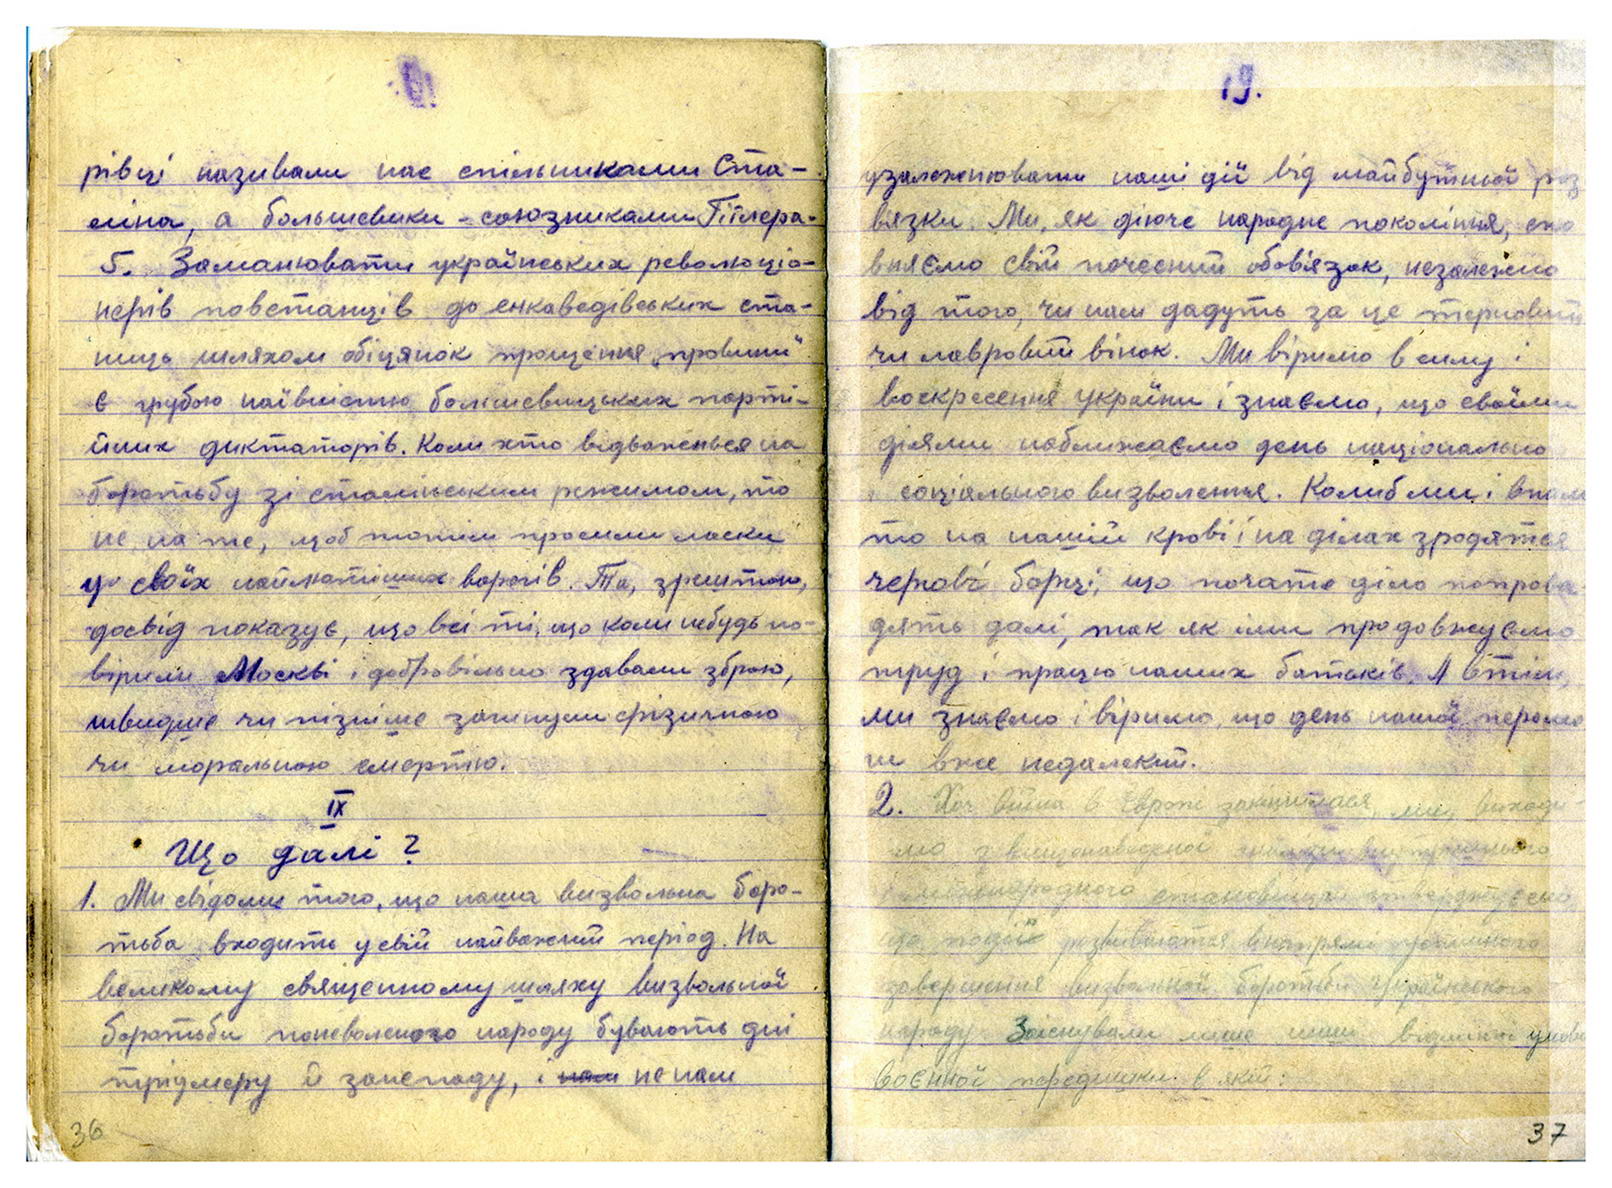 рівці називали нас спільниками Ста-
ліна, а большевики - союзниками Гітлера.
5. Заманювати українських революціо-
нерів повстанців до енкаведівських ста-
ниць шляхом обіцянок прощення „провини"
є грубою наївністю большевицьких парті-
йних диктаторів. Коли хто відважився на
боротьбу зі сталінським режимом, то
не на те, щоб потім просити ласки
у своїх найлютіших ворогів. Та, зрештою,
досвід показує, що всі ті, що коли небудь по-
вірили Москві і добровільно здавали зброю,
швидше чи пізніше загинули фізичною
чи моральною смертю.
IX
Що далі?
1. Ми свідомі того, що наша визвольна боро-
тьба входить у свій найважчий період. На
великому священному шляху визвольної
боротьби поневоленого народу бувають дні
тріумфу й занепаду, і нам не нам
36
19.
узалежнювати наші дії від майбутньої роз
вязки. Ми, як діюче народне покоління, спо
вняємо свій почесний обовʼязок, незалежно
від того, чи нам дадуть за це терновий
чи лавровий вінок. Ми віримо в силу і
воскресення України і знаємо, що своїми
діями наближаємо день національно
і соціального визволення. Коли б ми і впали
то на нашій крові і на ділах зродяться
чергові борці, що почате діло попрова
дять далі, так як і ми продовжуємо
труд і працю наших батьків. А втім,
ми знаємо і віримо, що день нашої перемо
ги вже недалекий.
2. Хоч війна в Європі закінчилася, ми, виходя
чи з вищенаведеної внутрішнього
і міжнародного становища стверджуємо,
що події розвиваються в напрямі успішного
завершення визвольної боротьби Українського
народу. Заіснували лише інші відмінні умови
воєнної передишки в якій:
37